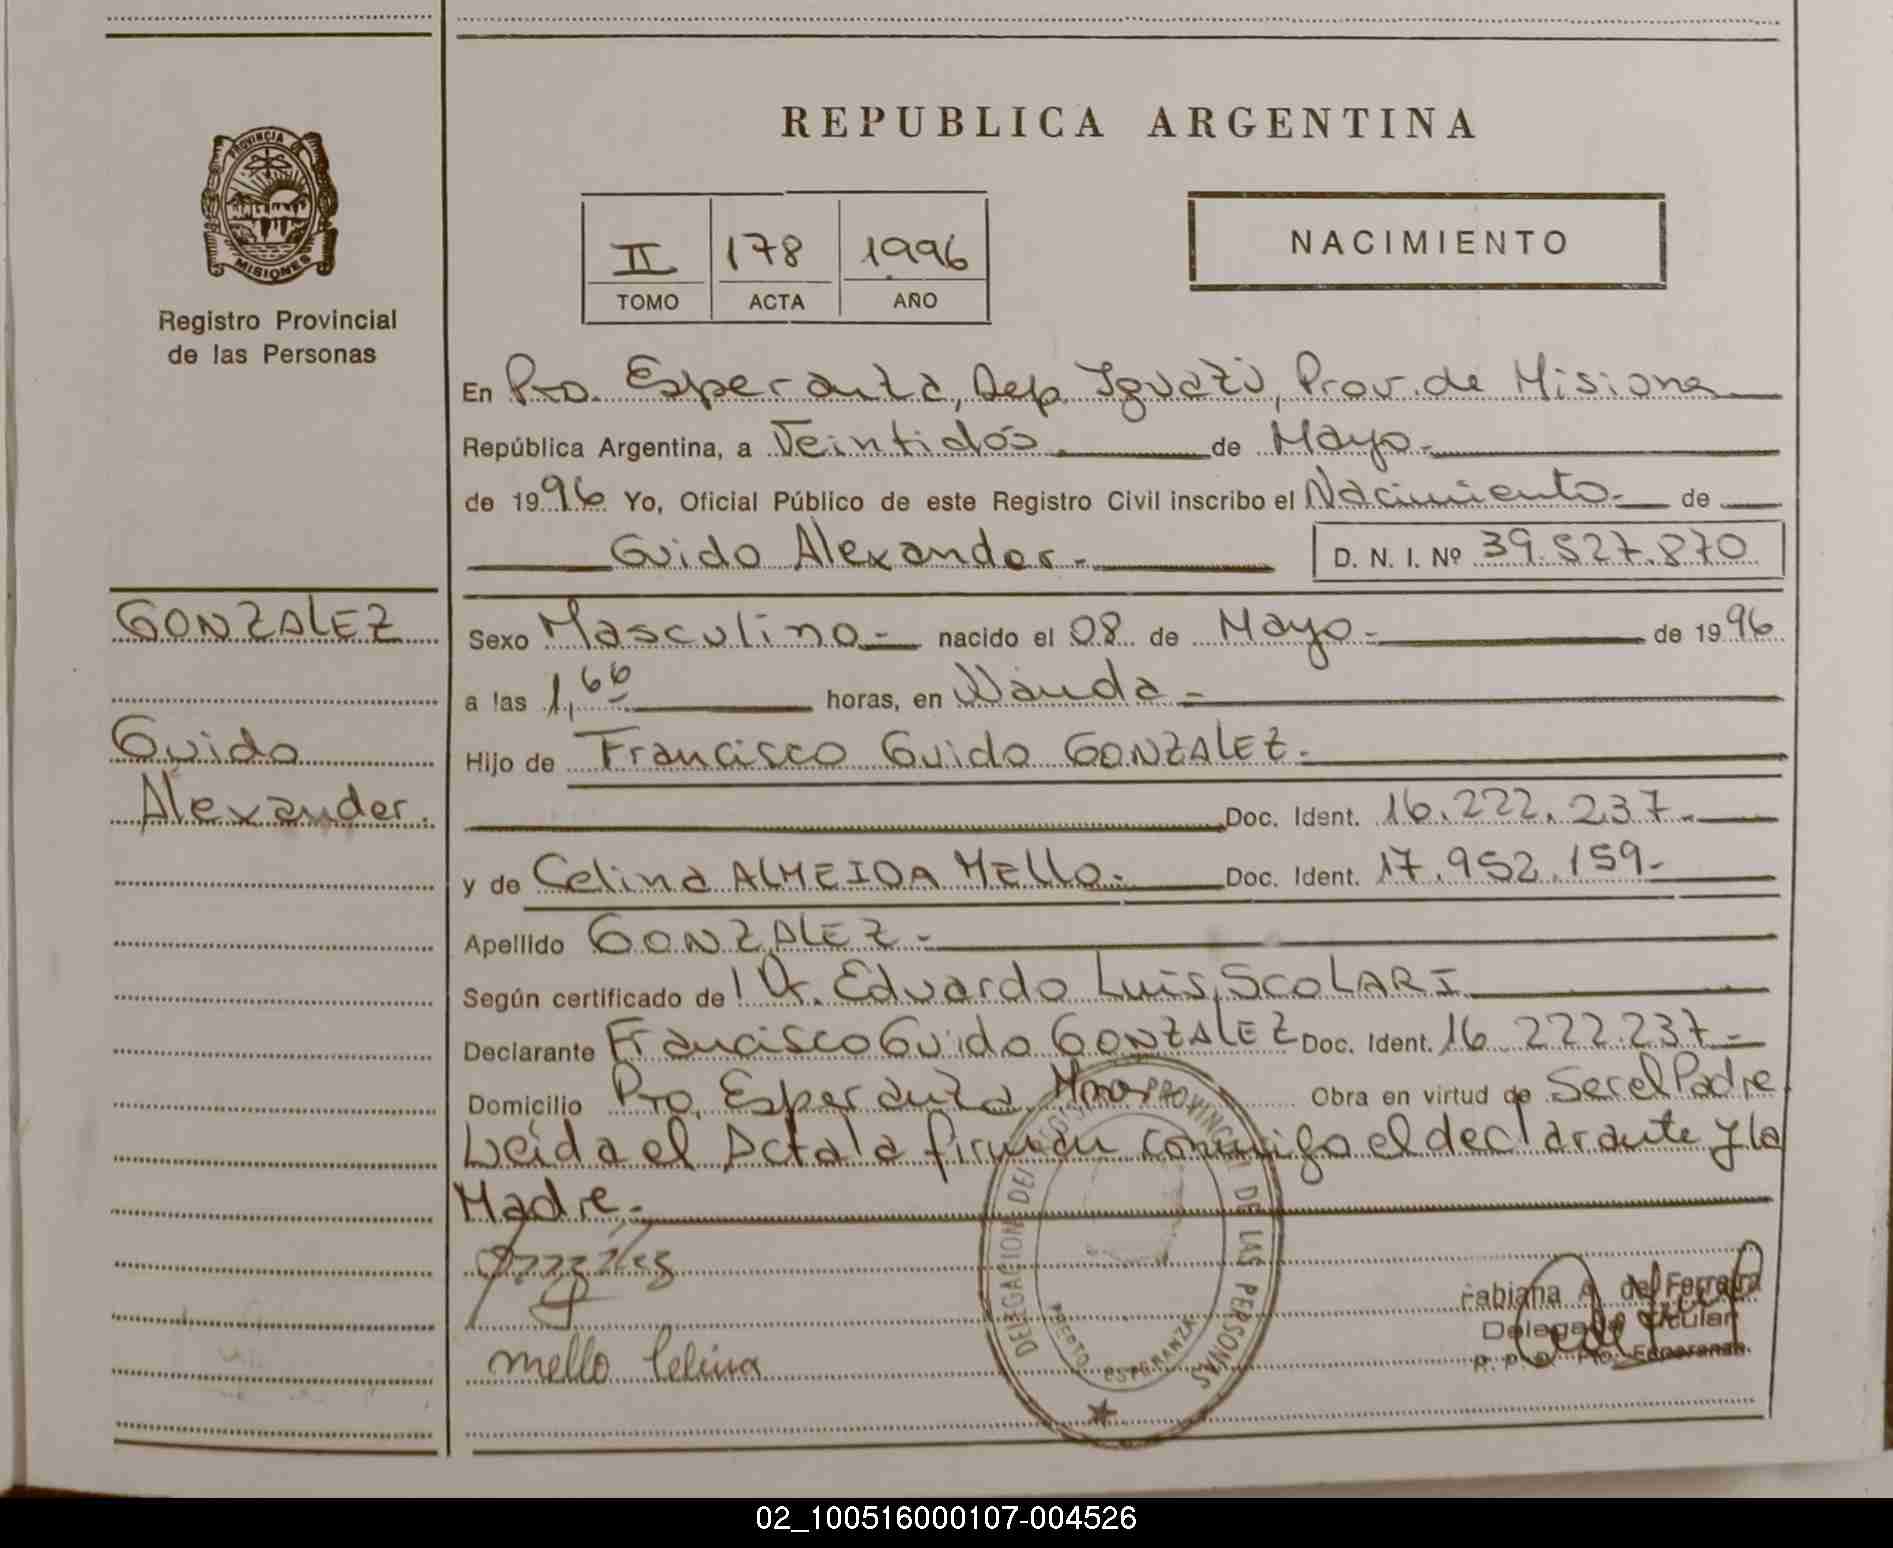 REPUBLICA ARGENTINA
PROVINCIA DE
MISIONES
Registro Provincial
de las Personas
II 178 1996
TOMO ACTA AÑO
NACIMIENTO
En Pto. Esperanza, Dep. Iguazú, Prov. de Misiones
República Argentina, a Veintidós de Mayo.
de 1996 Yo, Oficial Público de este Registro Civil inscribo el Nacimiento. de
Guido Alexander. D. N. I. Nº 39.527.870
GONZALEZ
Guido
Alexander.
Sexo Masculino. nacido el 08 de Mayo. de 1996
a las 1, horas, en Wanda
Hijo de Francisco Guido GONZALEZ.
Doc. Ident. 16.222.237.
y de Celina ALMEIDA MELLO. Doc. Ident. 17.952.159.
Apellido GONZALEZ.
Según certificado de Dr. Eduardo Luis SCOLARI
Declarante Francisco Guido GONZALEZ Doc. Ident. 16.222.237.
Domicilio Pto. Esperanza Mnes. Obra en virtud de Ser el Padre.
Leida el Acta la firman conmigo el declarante y la
Madre.
mello Celina
DELEGACION DEL PROVINCIAL DE LAS PERSONAS
PUERTO ESPERANZA
Fabiana A. del Ferreira
Delegada Titular
02_100516000107-004526